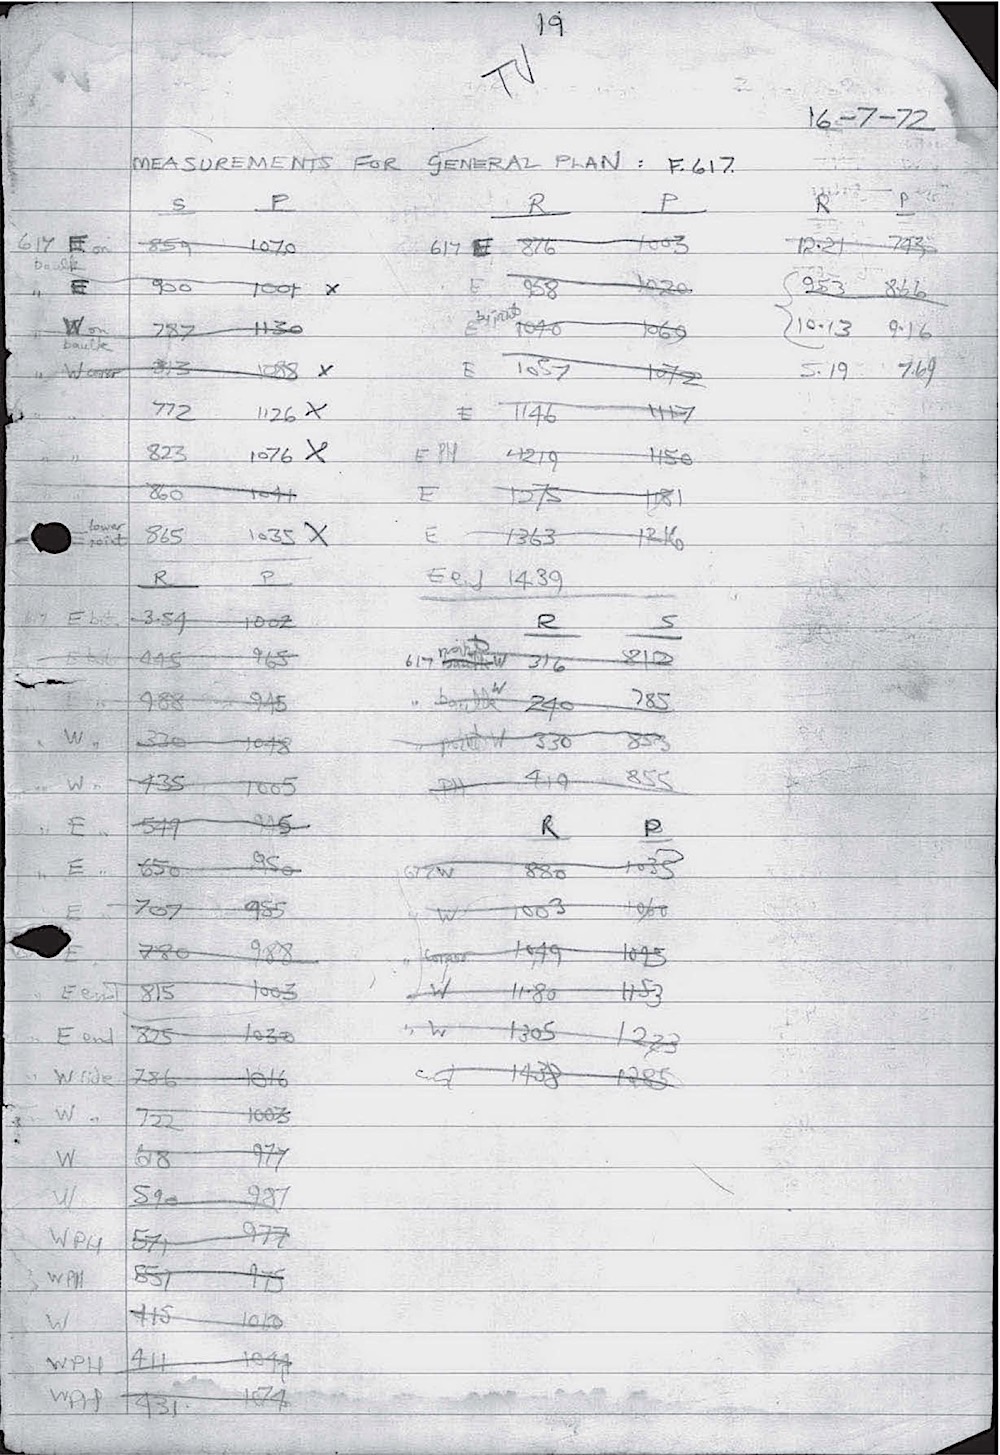 19
TV
16-7-72
MEASUREMENTS FOR GENERAL PLAN : F.617.
S P
617 E on baulk 859 1070
" E 900 1001 x
" W on baulk 787 1130
" W corner 813 1088 x
" " 772 1126 X
" " 823 1076 X
" " 860 1041
lower point 865 1035 X
R P
617 E bit 3.54 1002
E bit 445 965
" 988 945
" W " 330 1048
" W " 435 1005
" E " 549 945
" E " 650 950
" E 707 985
E " 780 988
" E end 815 1003
" E end 825 1030
" W side 786 1016
W " 722 1003
W 618 977
W 590 987
WPH 571 977
WPH 557 975
W 415 1010
WPH 411 1044
WPH 431 1074
R P
617 E 876 1003
E 958 1020
E 1040 1060
E 1057 1072
E 1146 1117
E PH 1219 1150
E 1275 1181
E 1363 1216
E end 1439
R S
617 W 316 810
" baulk W 240 785
" point W 330 853
PH 419 855
R P
617 W 880 1035
W 1003 1060
" corner 1049 1095
" W 1180 1153
" W 1305 1223
end 1438 1285
R P
12.21 793
953 866
10.13 9.16
5.19 7.69